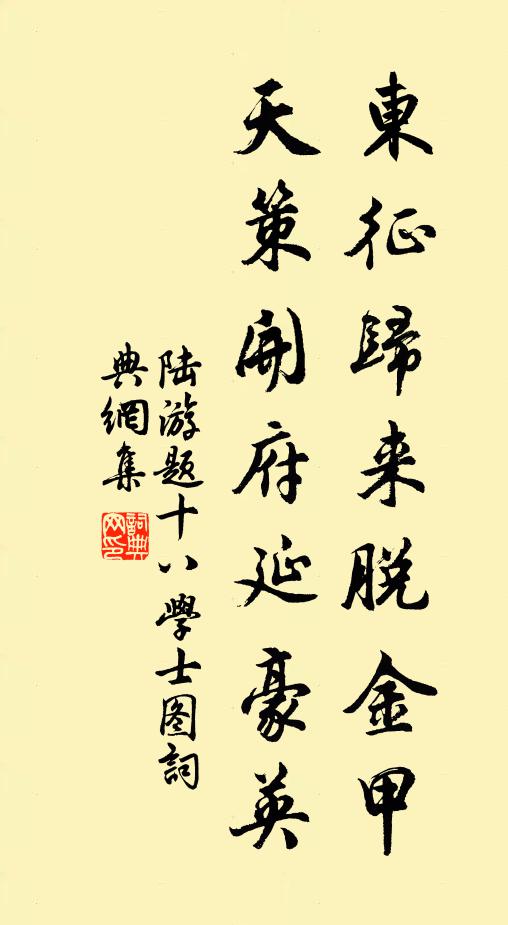 東征歸来脱金甲
天策開府延豪英
陆游题十八學士图詞
典網集
詞典
网印